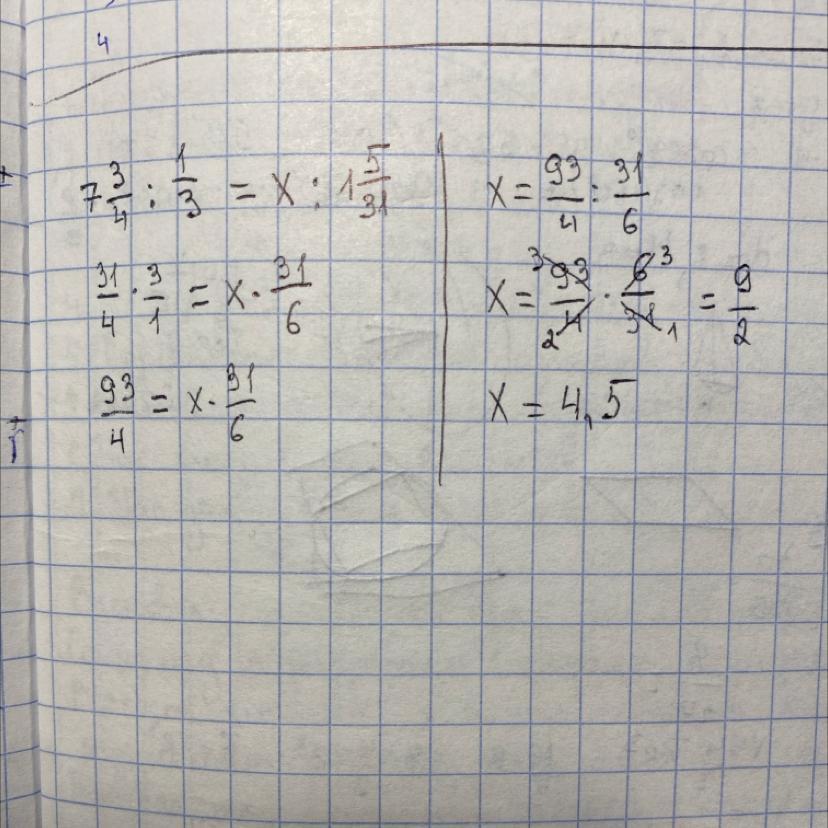 4
7 3/4 : 1/3 = x : 1 5/31
31/4 · 3/1 = x · 31/6
93/4 = x · 31/6
x = 93/4 : 31/6
x = 93/4 · 6/31 = 9/2
3 3
2 1
x = 4,5